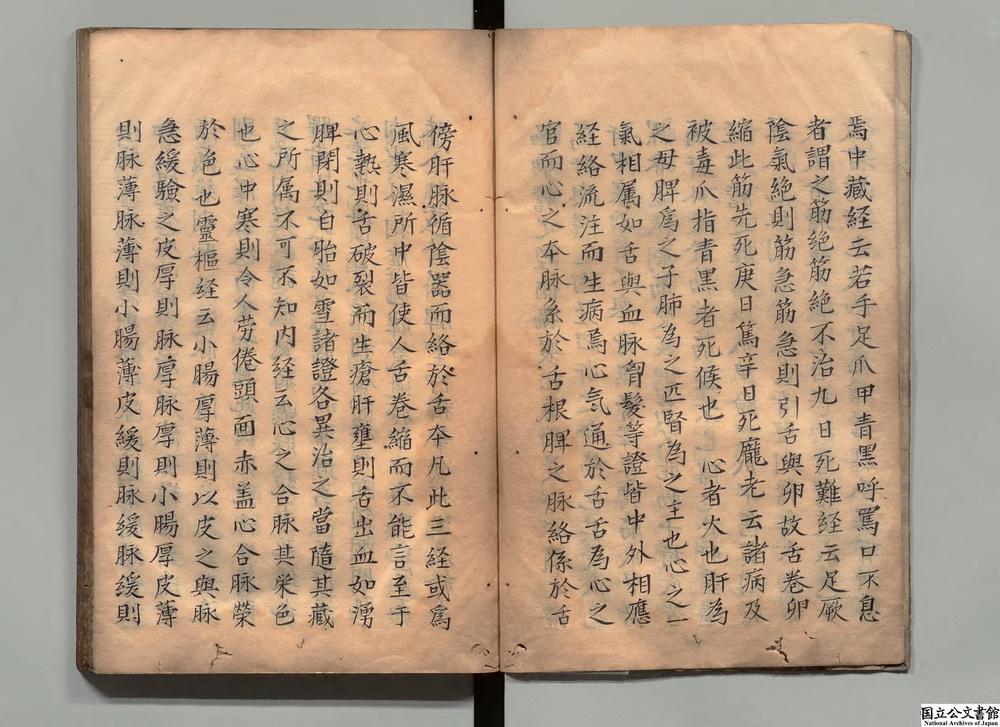 焉中藏経云若手足爪甲青黒呼罵口不息
者謂之筋絶筋絶不治九日死難経云足厥
陰氣絶則筋急筋急則引舌與卵故舌卷卵
縮此筋先死庚日篤辛日死龐老云諸病及
被毒爪指青黒者死候也 心者火也肝為
之母脾為之子肺為之匹腎為之王也心之一
氣相属如舌與血脉骨髮等證皆中外相應
経絡流注而生病焉心氣通於舌舌為心之
官而心之本脉系於舌根脾之脉絡係於舌
傍肝脉循陰器而絡於舌本凡此三経或為
風寒濕所中皆使人舌卷縮而不能言至于
心熱則舌破裂而生瘡肝壅則舌出血如湧
脾閉則白胎如雪諸證各異治之當隨其藏
之所属不可不知内経云心之合脉其栄色
也心中寒則令人劳倦頭面赤盖心合脉榮
於色也靈樞経云小腸厚薄則以皮之與脉
急緩驗之皮厚則脉厚脉厚則小腸厚皮薄
則脉薄脉薄則小腸薄皮緩則脉緩脉緩則
国立公文書館
National Archives of Japan